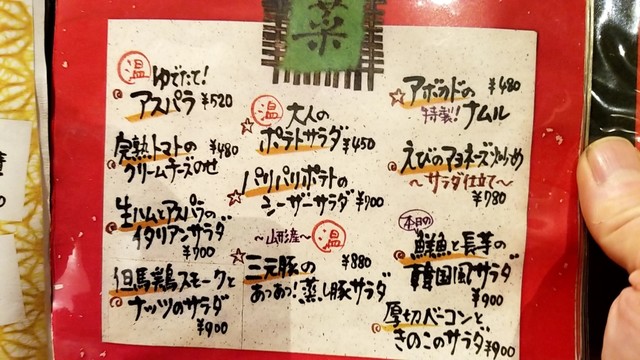 菜
アボカドの ¥480
特製!ナムル
えびのマヨネーズ炒め
〜サラダ仕立て〜
¥780
本日の
鮮魚と長芋の
韓国風サラダ
¥900
厚切ベーコンと
きのこのサラダ ¥900
温 大人の
ポテトサラダ ¥450
パリパリポテトの
シーザーサラダ ¥700
〜山形産〜 温
三元豚の ¥880
あっあっ!蒸し豚サラダ
温 ゆでたて!
アスパラ ¥520
完熟トマトの ¥480
クリームチーズのせ
生ハムとアスパラの
イタリアンサラダ
¥900
但馬鶏スモークと
ナッツのサラダ
¥900